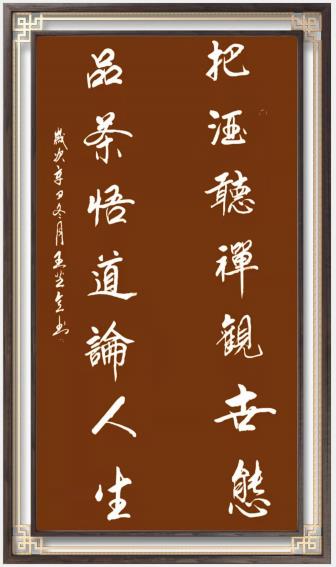 把酒聽禪觀世態
品茶悟道論人生
歲次辛丑冬月王芝